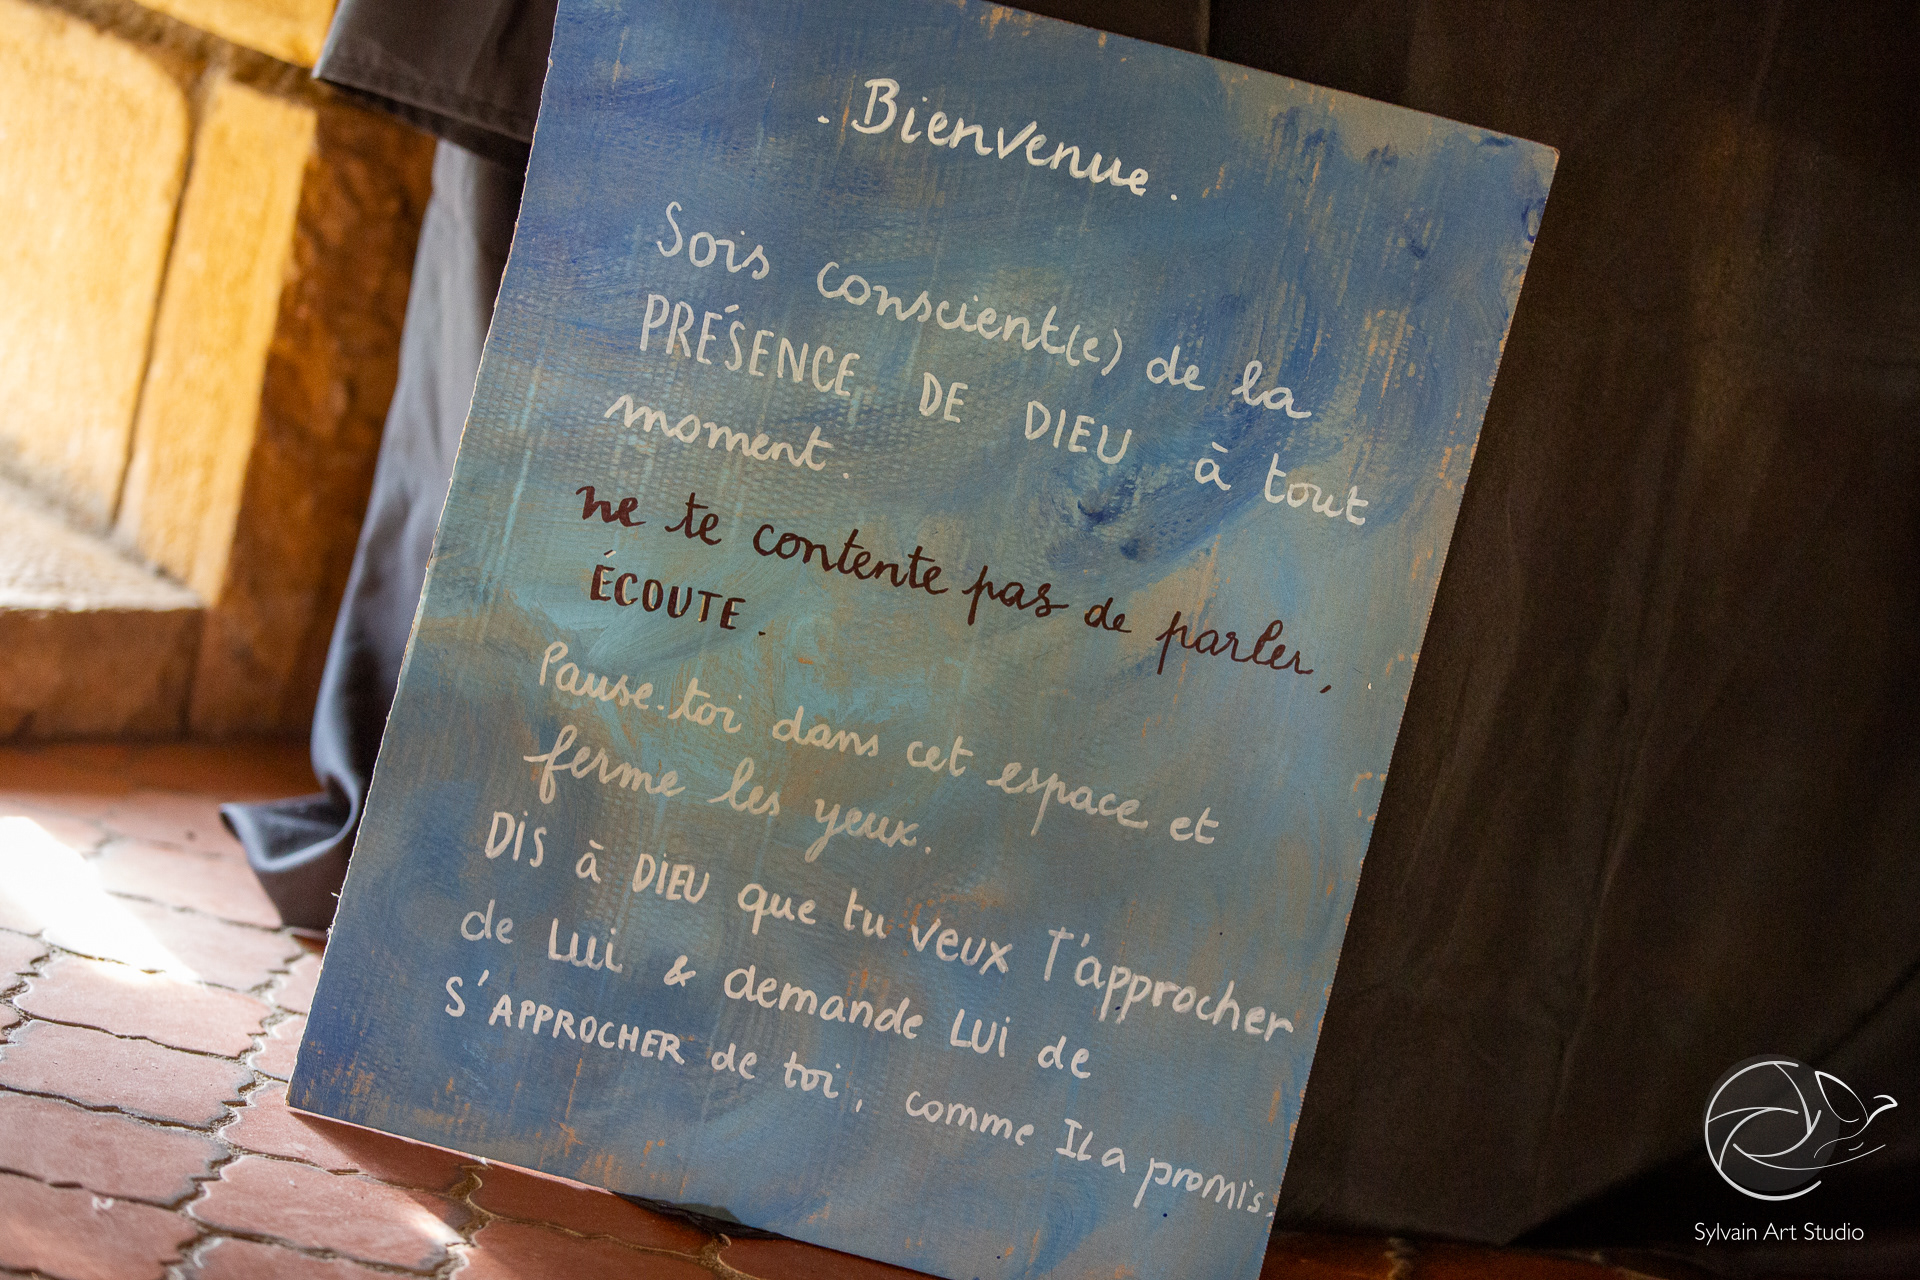 . Bienvenue .
Sois conscient(e) de la
PRÉSENCE DE DIEU à tout
moment.
ne te contente pas de parler,
ÉCOUTE.
Pause-toi dans cet espace et
ferme les yeux.
DIS à DIEU que tu veux T'approcher
de Lui & demande LUI de
S'APPROCHER de toi, comme Il a promis.
Sylvain Art Studio